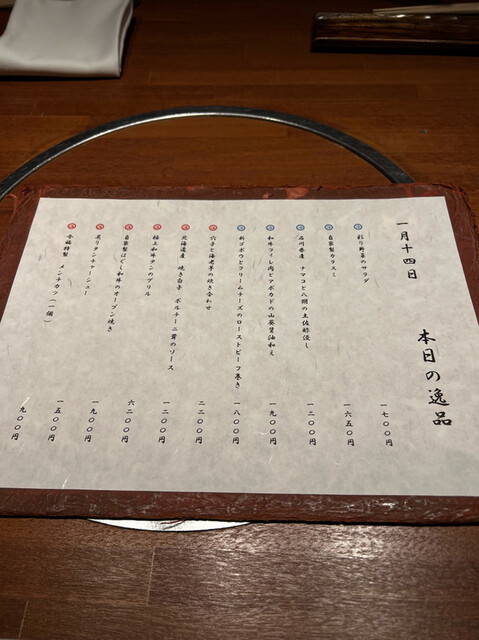 一月十四日 本日の逸品
彩り野菜のサラダ 一七〇〇円
自家製カラスミ 一六五〇円
石川県産 ナマコと八朔の土佐酢浸し 一二〇〇円
和牛フィレ肉とアボカドの山葵醤油和え 一九〇〇円
新ゴボウとクリームチーズのローストビーフ巻き 一八〇〇円
穴子と海老芋の炊き合わせ 二二〇〇円
北海道産 焼き白子 ポルチーニ茸のソース 一二〇〇円
極上和牛タンのグリル 六二〇〇円
自家製ほぐし和牛のオーブン焼き 一九〇〇円
炙りタンチャーシュー 一五〇〇円
今福特製 メンチカツ（一個） 九〇〇円